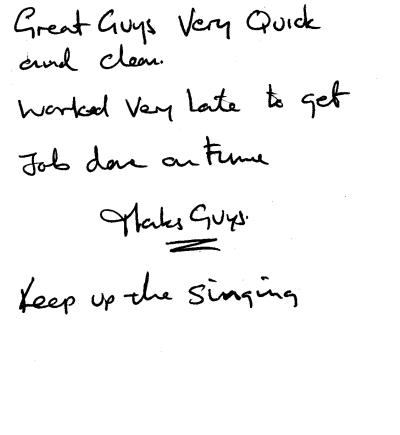 Great Guys Very Quick
and clean.
Worked Very Late to get
Job done on time
Thanks Guys.
Keep up the singing